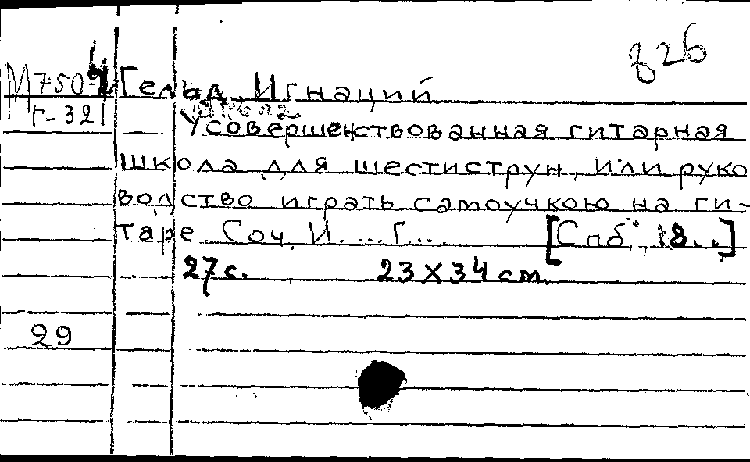 826
М750
Г-321
Гельд, Игнаций
Усовершенствованная гитарная
школа для шестиструн, или руко
водство играть самоучкою на ги-
таре. Соч. И.... Г.... [Спб. 18..]
27 с. 23 X 34 см.
29